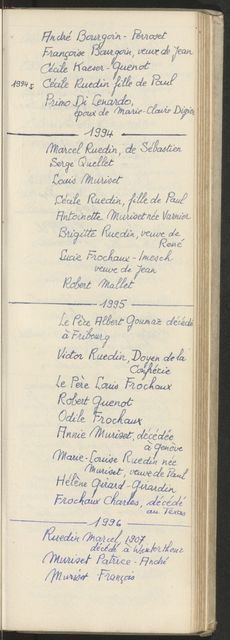 André Bourgoin - Perroset
Françoise Bourgoin, veuve de Jean
Cécile Kaeser - Quenot
1994 Cécile Ruedin fille de Paul
Primo Di Lenardo,
époux de Marie-Claire Digier
1994
Marcel Ruedin, de Sébastien
Serge Quellet
Louis Muriset
Cécile Ruedin, fille de Paul
Antoinette Muriset née Varnier
Brigitte Ruedin, veuve de
René
Lucie Frochaux - Imesch
veuve de Jean
Robert Mallet
1995
Le Père Albert Goumaz décédé
à Fribourg
Victor Ruedin, Doyen de la
Confrérie
Le Père Louis Frochaux
Robert Quenot
Odile Frochaux
Annie Muriset, décédée
à Genève
Marie-Louise Ruedin née
Muriset, veuve de Paul
Hélène Girard - Girardin
Frochaux Charles, décédé
au Texas
1996
Ruedin Marcel, 1907
décédé à Winterthour
Muriset Patrice - André
Muriset François